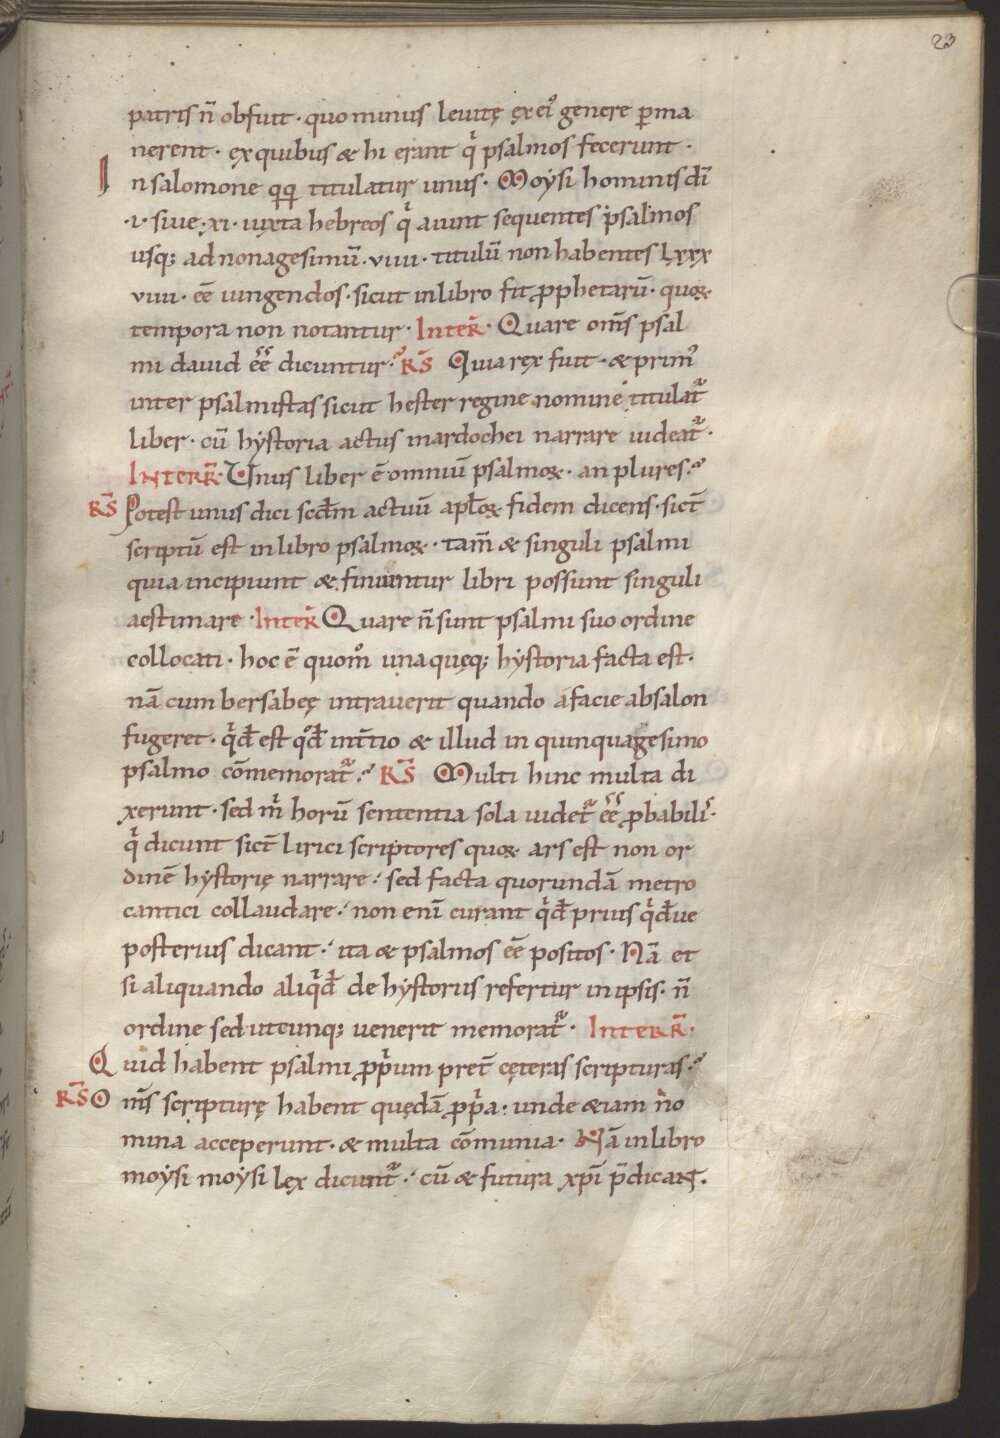 23
patris n̄ obfuit · quo minus leuitę ęx ei᾽ genere ꝑma
nerent · ęx quibus & hi erant q̇ psalmos fecerunt ·
In salomone qͥqͥ titulatur unus · Moẏsi hominis dī
·i· siue · xi · iuxta hebreos q̇ aiunt sequentes psalmos
usq; ad nonagesimū · viiii · titulū non habentes Lxxx
viiii · eē iungendos · sicut in libro fit ꝓphetarū · quoꝝ
tempora non notantur · Inter̄ · Quare om̄s psal
mi dauid eē dicuntur · R̄S Quia ręx fuit · & prim᾽
inter psalmistas sicut hester regine nomine titulat᷑
liber · cū hẏstoria actus mardochei narrare uideat᷑ ·
Interr̄ · Unus liber ē omniū psalmoꝝ · an plures ·
R̄S Potest unus dici scd̄m actuū apl̄oꝝ fidem dicens · sic̄t
scriptū est in libro psalmoꝝ · tam̄ & singuli psalmi
quia incipiunt & finiuntur libri possunt singuli
aestimare · Inter̄ Quare n̄ sunt psalmi suo ordine
collocati · hoc ē quom̊ una quęq; hẏstoria facta est ·
nā cum bersabeę intrauerit quando a facie absalon
fugeret · q̇d̄ est qd̄ int̄tio & illud in quinquagesimo
psalmo cōmemorat᷑ · R̄S Multi hinc multa di
xerunt · sed ṁ horū sententia sola uidet᷑ eē ꝓbabili᾽ ·
q̇ dicunt sic̄t lirici scriptores quoꝝ ars est non or
dinē hẏstorię narrare · sed facta quorundā metro
cantici collaudare · non enī curant q̇d̄ prius q̇d̄ue
posterius dicant · ita & psalmos eē positos · Nā et
si aliquando aliq̇d̄ de hẏstoriis refertur in ipsis · n̄
ordine sed utcunq; uenerit memorat᷑ · Interr̄ ·
Quid habent psalmi ꝓpͥum pret̄ cęteras scripturas ·
R̄S Om̄s scripturę habent quędā ꝓpͥa · unde &iam no
mina acceperunt · & multa cōmunia · Nā in libro
moẏsi moẏsi lęx dicunt᷑ · cū & futura xp̄i p̄dicant ·